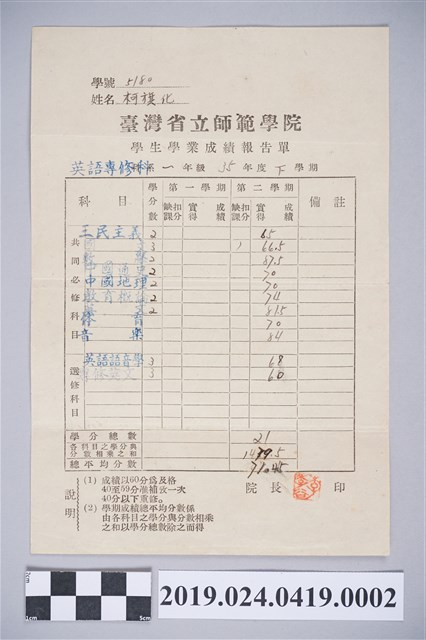 學號 5180
姓名 柯旗化
臺灣省立師範學院
學生學業成績報告單
英語專修科 第一年級 35年度下學期
科目 學分數 第一學期 第二學期 備註
缺課 扣分 實得成績 缺課 扣分 實得成績
共同必修科目
三民主義 2 65
國文 3 1 66.5
2 87.5
中國通史 2 70
中國地理 2 70
教育概論 2 74
2 81.5
體育 70
音樂 84
選修科目
英語語音學 3 68
3 60
學分總數 21
各科目之學分與分數相乘之和
總平均分數
院長 印
說明
(1) 成績以60分為及格
40至59分准補考一次
40分以下重修。
(2) 學期成績總平均分數係
由各科目之學分與分數相乘
之和以學分總數除之而得
2019.024.0419.0002